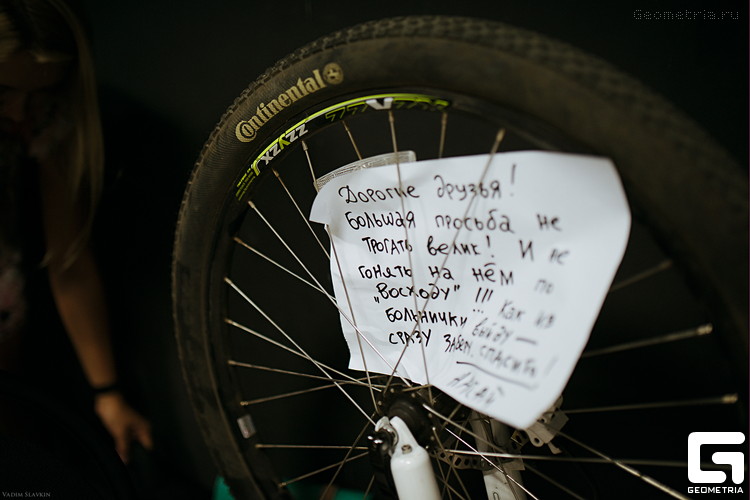 Geometria.ru
Continental
Дорогие друзья!
Большая просьба не
трогать велик! И не
гонять на нём по
"Восходу" !!! Как из
больнички выйду —
сразу забер. Спасибо!
VADIM SLAVKIN
GEOMETRIA